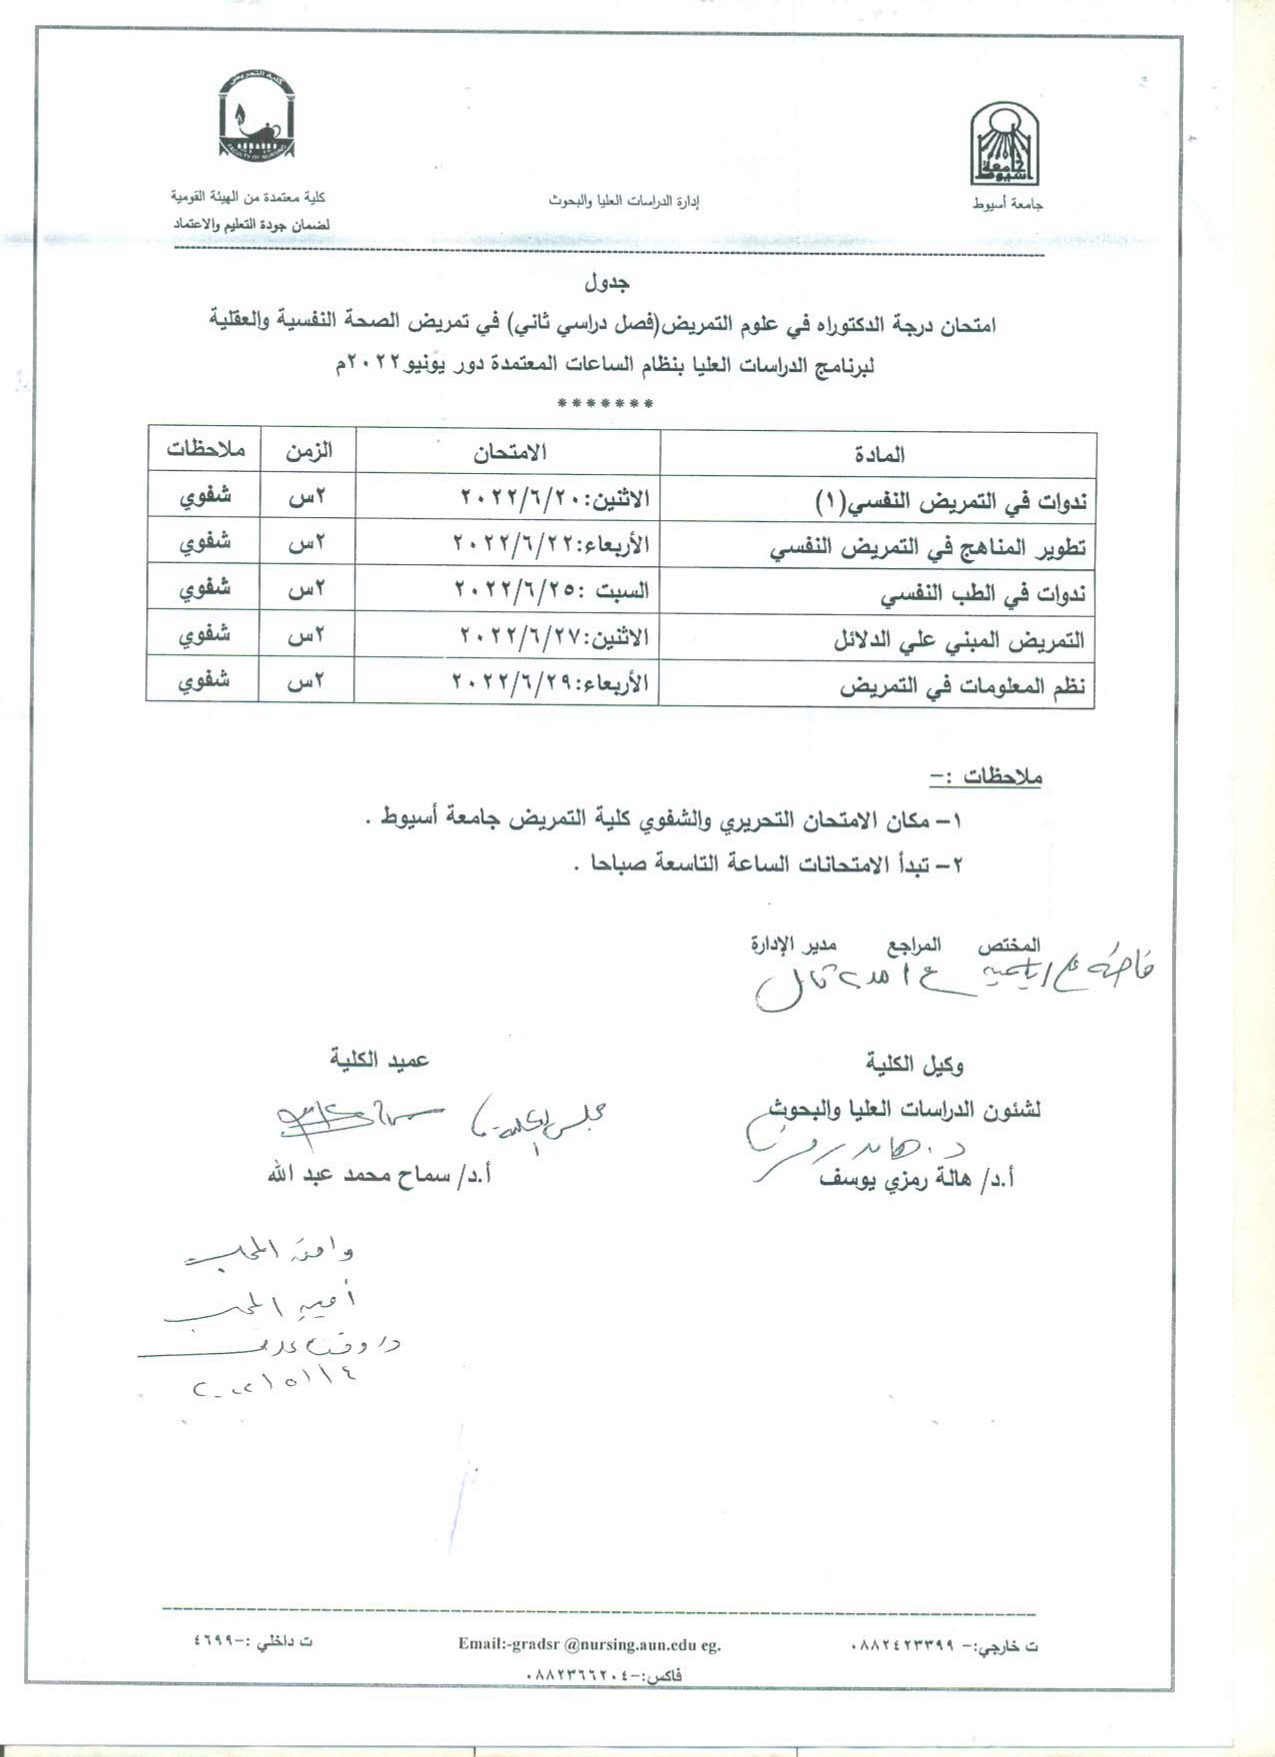 كلية التمريض
FACULTY OF NURSING
جامعة أسيوط
جامعة أسيوط
إدارة الدراسات العليا والبحوث
كلية معتمدة من الهيئة القومية
لضمان جودة التعليم والاعتماد
جدول
امتحان درجة الدكتوراه في علوم التمريض(فصل دراسي ثاني) في تمريض الصحة النفسية والعقلية
لبرنامج الدراسات العليا بنظام الساعات المعتمدة دور يونيو٢٠٢٢م
*******
المادة الامتحان الزمن ملاحظات
ندوات في التمريض النفسي(١) الاثنين:٢٠٢٢/٦/٢٠ ٢س شفوي
تطوير المناهج في التمريض النفسي الأربعاء:٢٠٢٢/٦/٢٢ ٢س شفوي
ندوات في الطب النفسي السبت :٢٠٢٢/٦/٢٥ ٢س شفوي
التمريض المبني علي الدلائل الاثنين:٢٠٢٢/٦/٢٧ ٢س شفوي
نظم المعلومات في التمريض الأربعاء:٢٠٢٢/٦/٢٩ ٢س شفوي
ملاحظات :-
١- مكان الامتحان التحريري والشفوي كلية التمريض جامعة أسيوط .
٢- تبدأ الامتحانات الساعة التاسعة صباحا .
المختص المراجع مدير الإدارة
وكيل الكلية عميد الكلية
لشئون الدراسات العليا والبحوث
مجلس الكلية
أ.د/ هالة رمزي يوسف أ.د/ سماح محمد عبد الله
وافق المجلس
أمين المجلس
٢٠٢٢/٥/١٤
ت خارجي:- ٠٨٨٢٤٢٣٣٩٩ Email:-gradsr @nursing.aun.edu eg. ت داخلي :-٤٦٩٩
فاكس:-٠٨٨٢٣٦٦٢٠٤